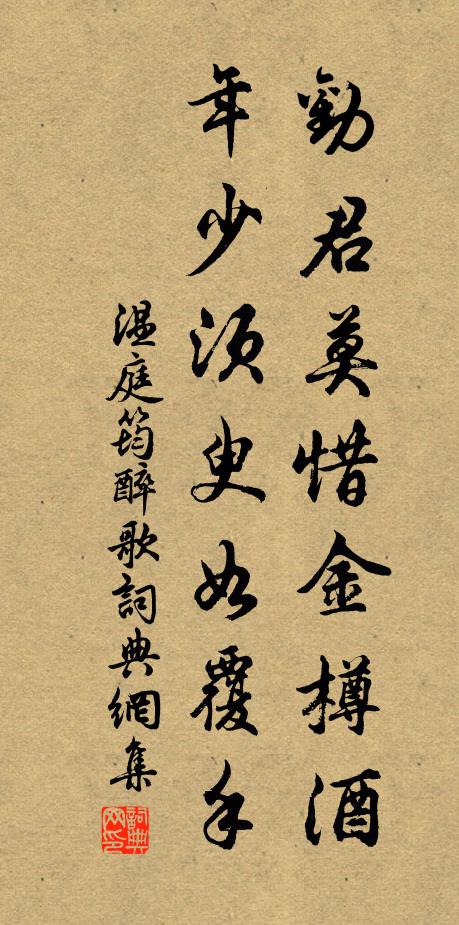 勸君莫惜金樽酒
年少須臾如覆手
溫庭筠醉歌詞典網集
詞典网印